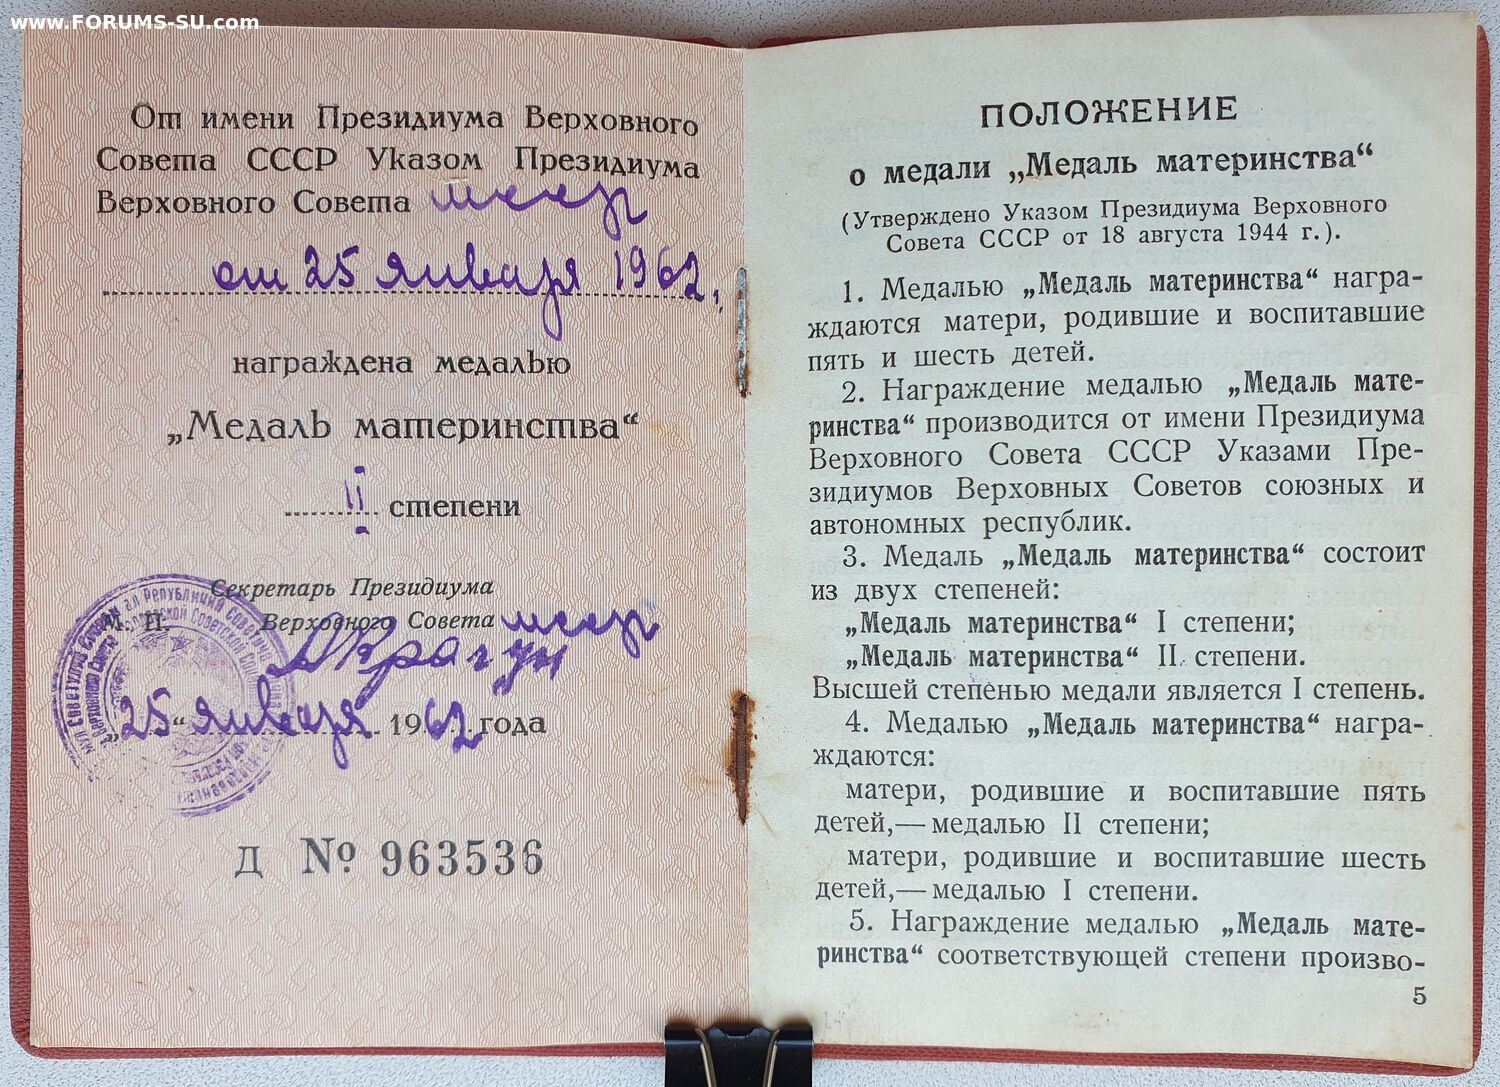 www.FORUMS-SU.com
От имени Президиума Верховного
Совета СССР Указом Президиума
Верховного Совета мсср
от 25 января 1962 г.
награждена медалью
„Медаль материнства“
II степени
Секретарь Президиума
М. П. Верховного Совета мсср
„25“ января 1962 года
Д № 963536
ПОЛОЖЕНИЕ
о медали „Медаль материнства“
(Утверждено Указом Президиума Верховного
Совета СССР от 18 августа 1944 г.).
1. Медалью „Медаль материнства“ награ-
ждаются матери, родившие и воспитавшие
пять и шесть детей.
2. Награждение медалью „Медаль мате-
ринства“ производится от имени Президиума
Верховного Совета СССР Указами Пре-
зидиумов Верховных Советов союзных и
автономных республик.
3. Медаль „Медаль материнства“ состоит
из двух степеней:
„Медаль материнства“ I степени;
„Медаль материнства“ II степени.
Высшей степенью медали является I степень.
4. Медалью „Медаль материнства“ награ-
ждаются:
матери, родившие и воспитавшие пять
детей,— медалью II степени;
матери, родившие и воспитавшие шесть
детей,— медалью I степени.
5. Награждение медалью „Медаль мате-
ринства“ соответствующей степени произво-
5